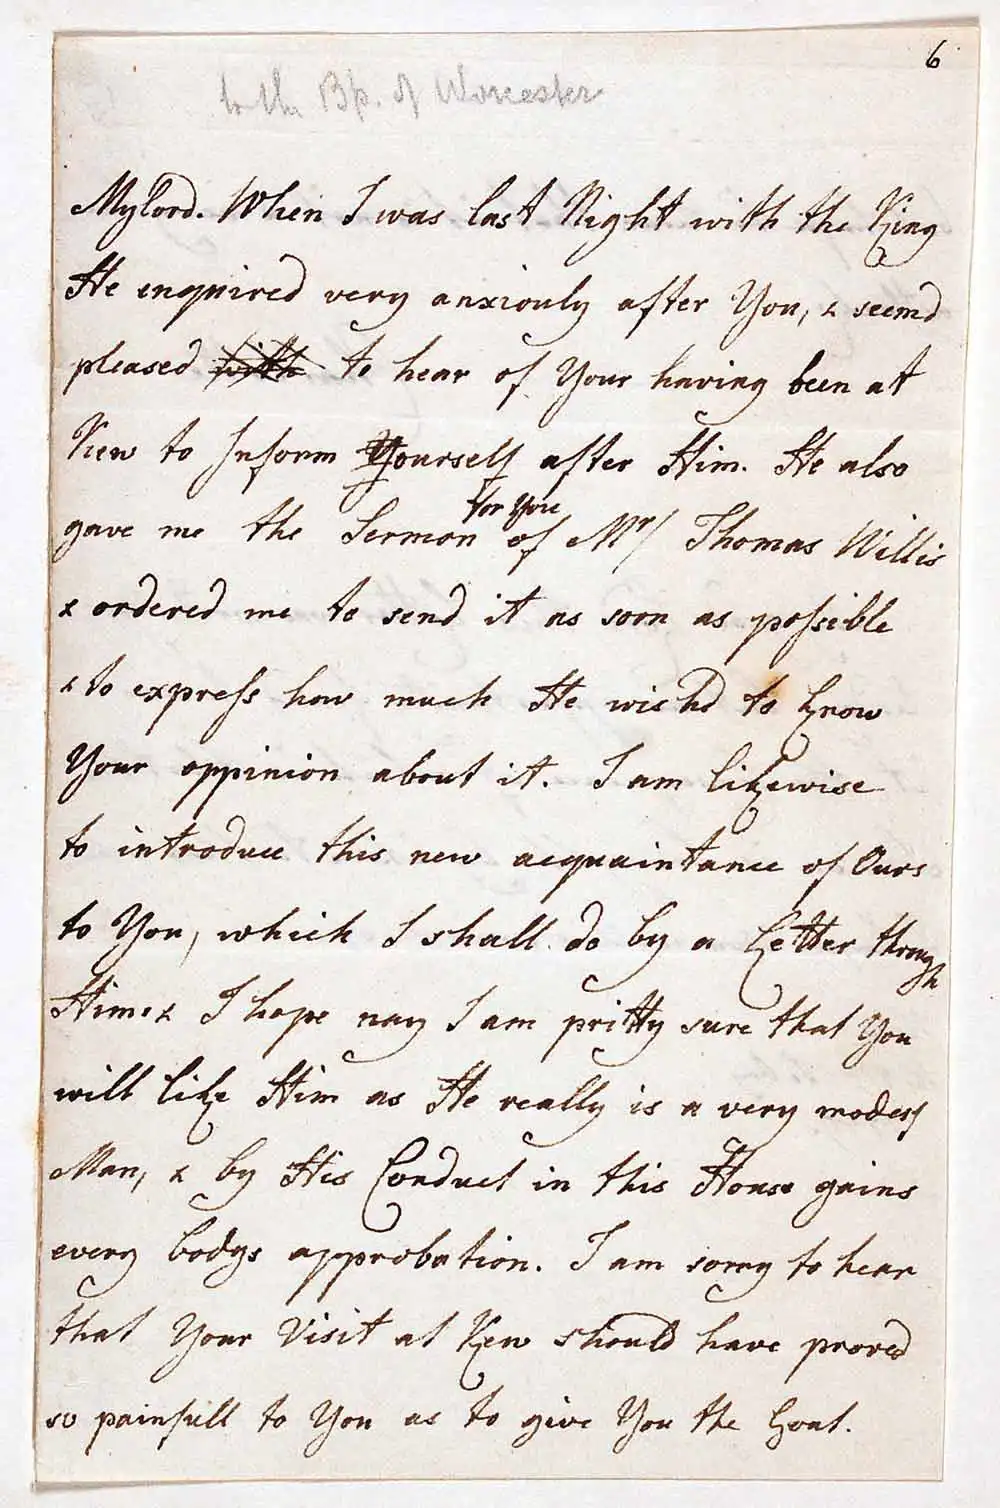 6
to the Bp. of Worcester
Mylord. When I was last Night with the King
He enquired very anxiouly after You, & seemd
pleased with to hear of Your having been at
Kew to Inform Yourself after Him. He also
for You
gave me the Sermon of Mr/ Thomas Willis
& ordered me to send it as soon as possible
& to express how much He wishd to know
Your oppinion about it. I am likewise
to introduce this new acquaintance of Ours
to You, which I shall do by a Letter through
Him. & I hope nay I am pritty sure that You
will like Him as He really is a very modest
Man, & by His Conduct in this House gains
every bodys approbation. I am sorry to hear
that Your Visit at Kew should have proved
so painfull to You as to give You the Gout.